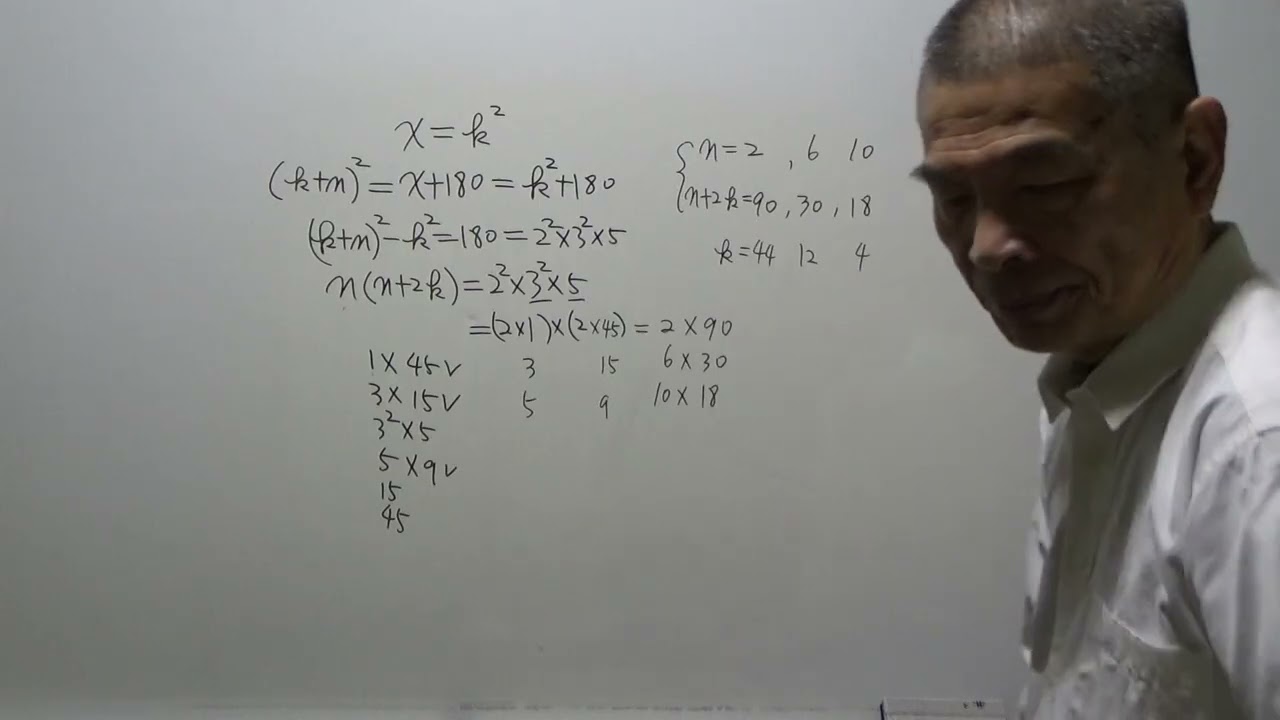 x = k²
(k+n)² = x+180 = k²+180
(k+n)²-k² = 180 = 2²×3²×5
n(n+2k) = 2²×3²×5
=(2×1)×(2×45) = 2×90
1×45√ 3 15 6×30
3×15√ 5 9 10×18
3²×5
5×9√
15
45
{ n=2 , 6 10
n+2k=90, 30, 18
k=44 12 4